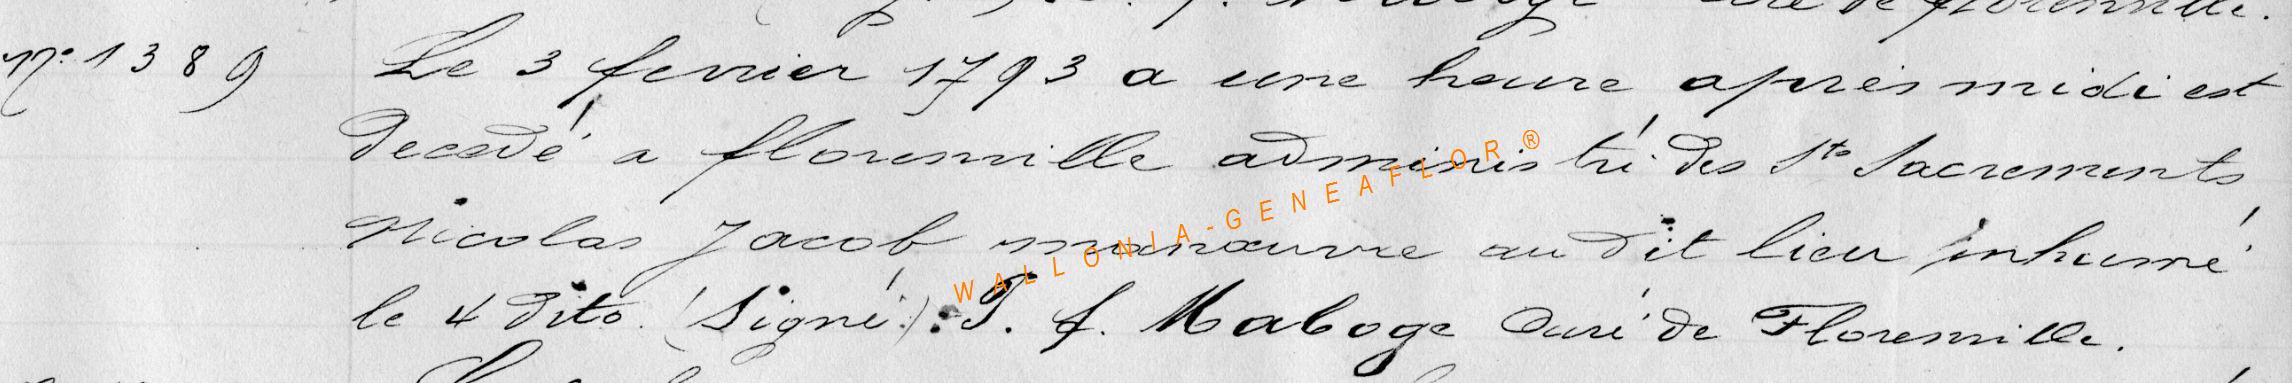 curé de florenville.
N° 1389 Le 3 fevrier 1793 a une heure après midi est
decedé a florenville administré des Sts Sacrements
Nicolas Jacob manœuvre au dit lieu inhumé
le 4 dito. (Signé) : J. f. Maboge Curé de Florenville.
WALLONIA-GENEAFLOR ®